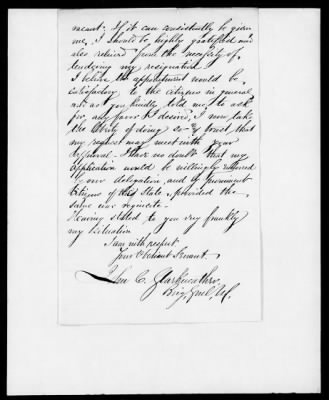 meant. If it can consistently be given
me, I should be highly gratified and
also relieved from the necessity of
tendering my resignation.
I believe the appointment would be
satisfactory to the citizens in general
and as you kindly told me to ask
for any favor I desired, I now take
the liberty of doing so & trust that
my request may meet with your
approval. I have no doubt that my
application would be willingly
by our delegation, and by prominent
Citizens of this State, provided the
same was requisite.
Having stated to you very frankly
my situation
I am with respect
Your Obedient Servant.
John C.
Brig. Genl. Vol.